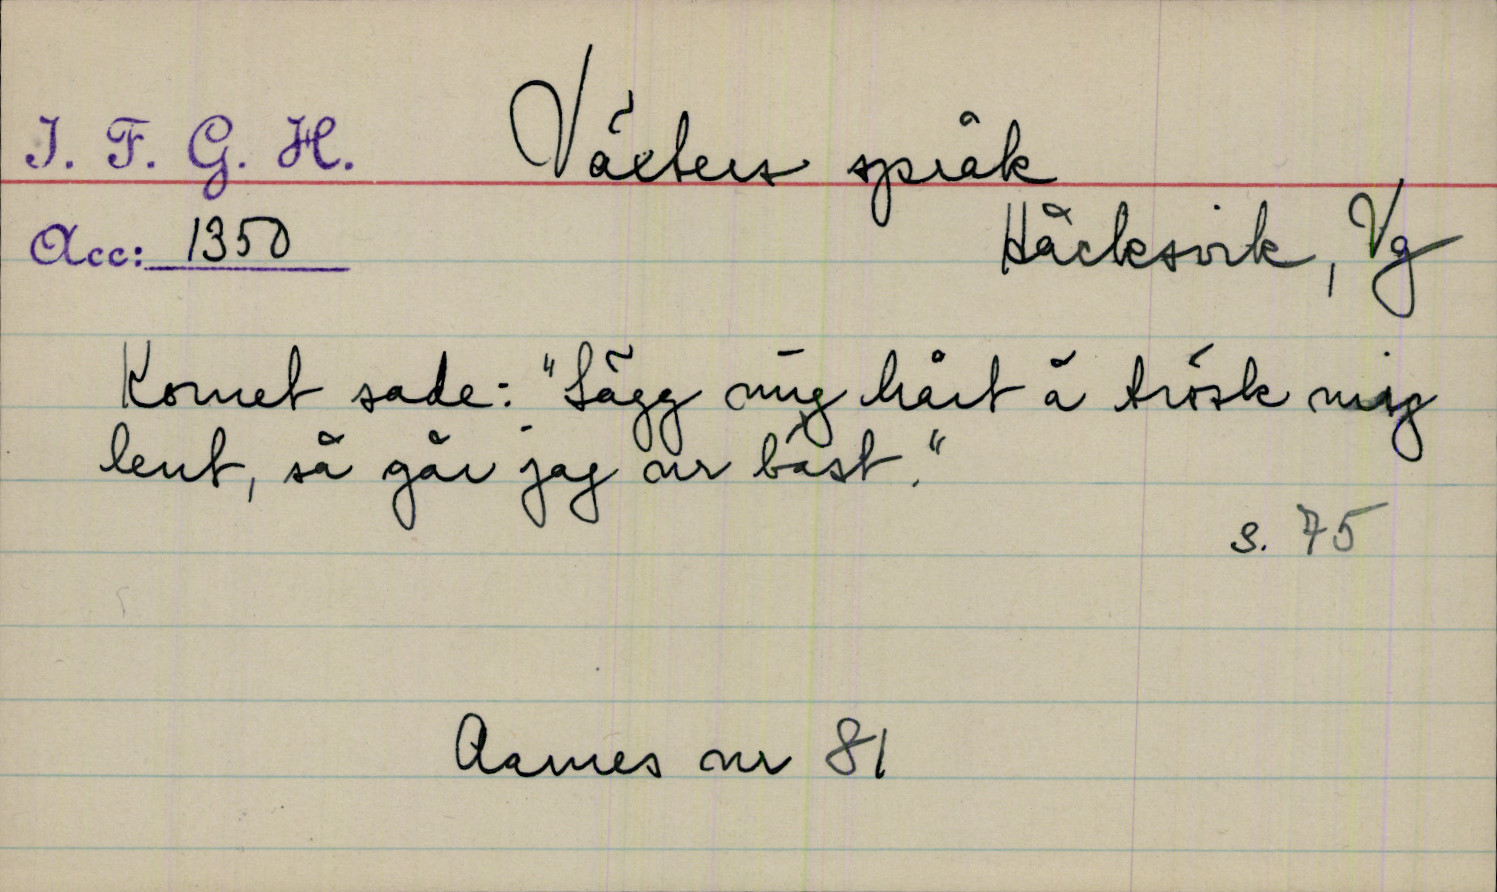 I. F. G. H.
Växters språk
Acc: 1350
Häcksvik, Vg
Kornet sade: "Lägg mig hårt å trösk mig
lent, så går jag ur bäst."
s. 75
Aames nr 81